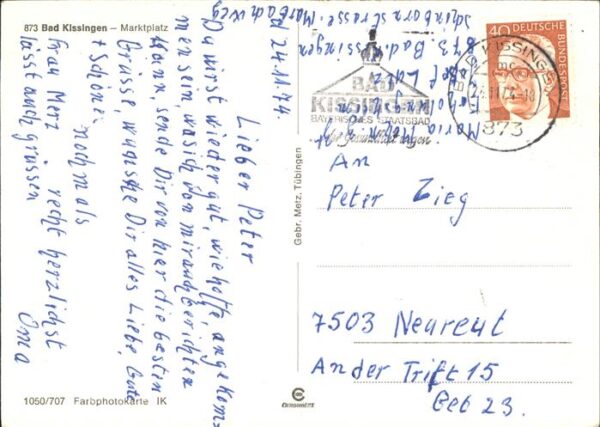 873 Bad Kissingen – Marktplatz
24.11.74.
Lieber Peter
Du wirst wieder gut, wie hoffe, angekom-
men sein, was ich von mir auch berichten
kann. sende Dir von hier die besten
Grüsse wünsche Dir alles Liebe, Gute
+ Schöne.
nochmals
recht herzlichst
Oma
Frau Merz
lässt auch grüssen
1050/707 Farbphotokarte IK
Gebr. Metz, Tübingen
Maria
873 Bad Kissingen
Schönbornstrasse
40 DEUTSCHE
BUNDESPOST
BAD KISSINGEN
873
BAD
KISSINGEN
BAYERISCHES STAATSBAD
An
Peter Zieg
7503 Neureut
An der Trift 15
Geb 23.